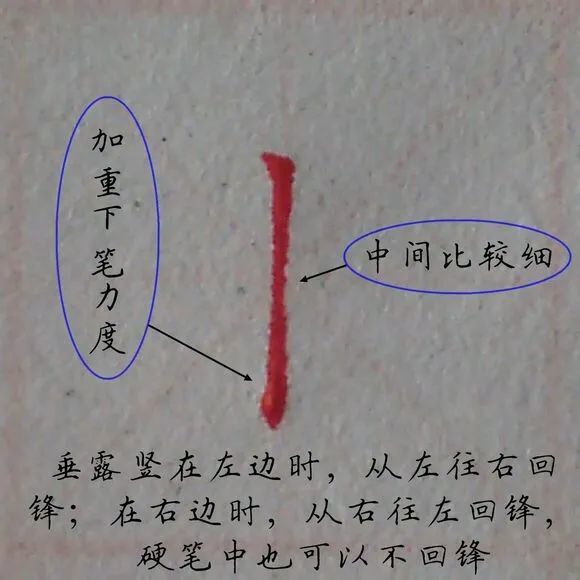 加重下笔力度
中间比较细
垂露竖在左边时，从左往右回
锋；在右边时，从右往左回锋，
硬笔中也可以不回锋